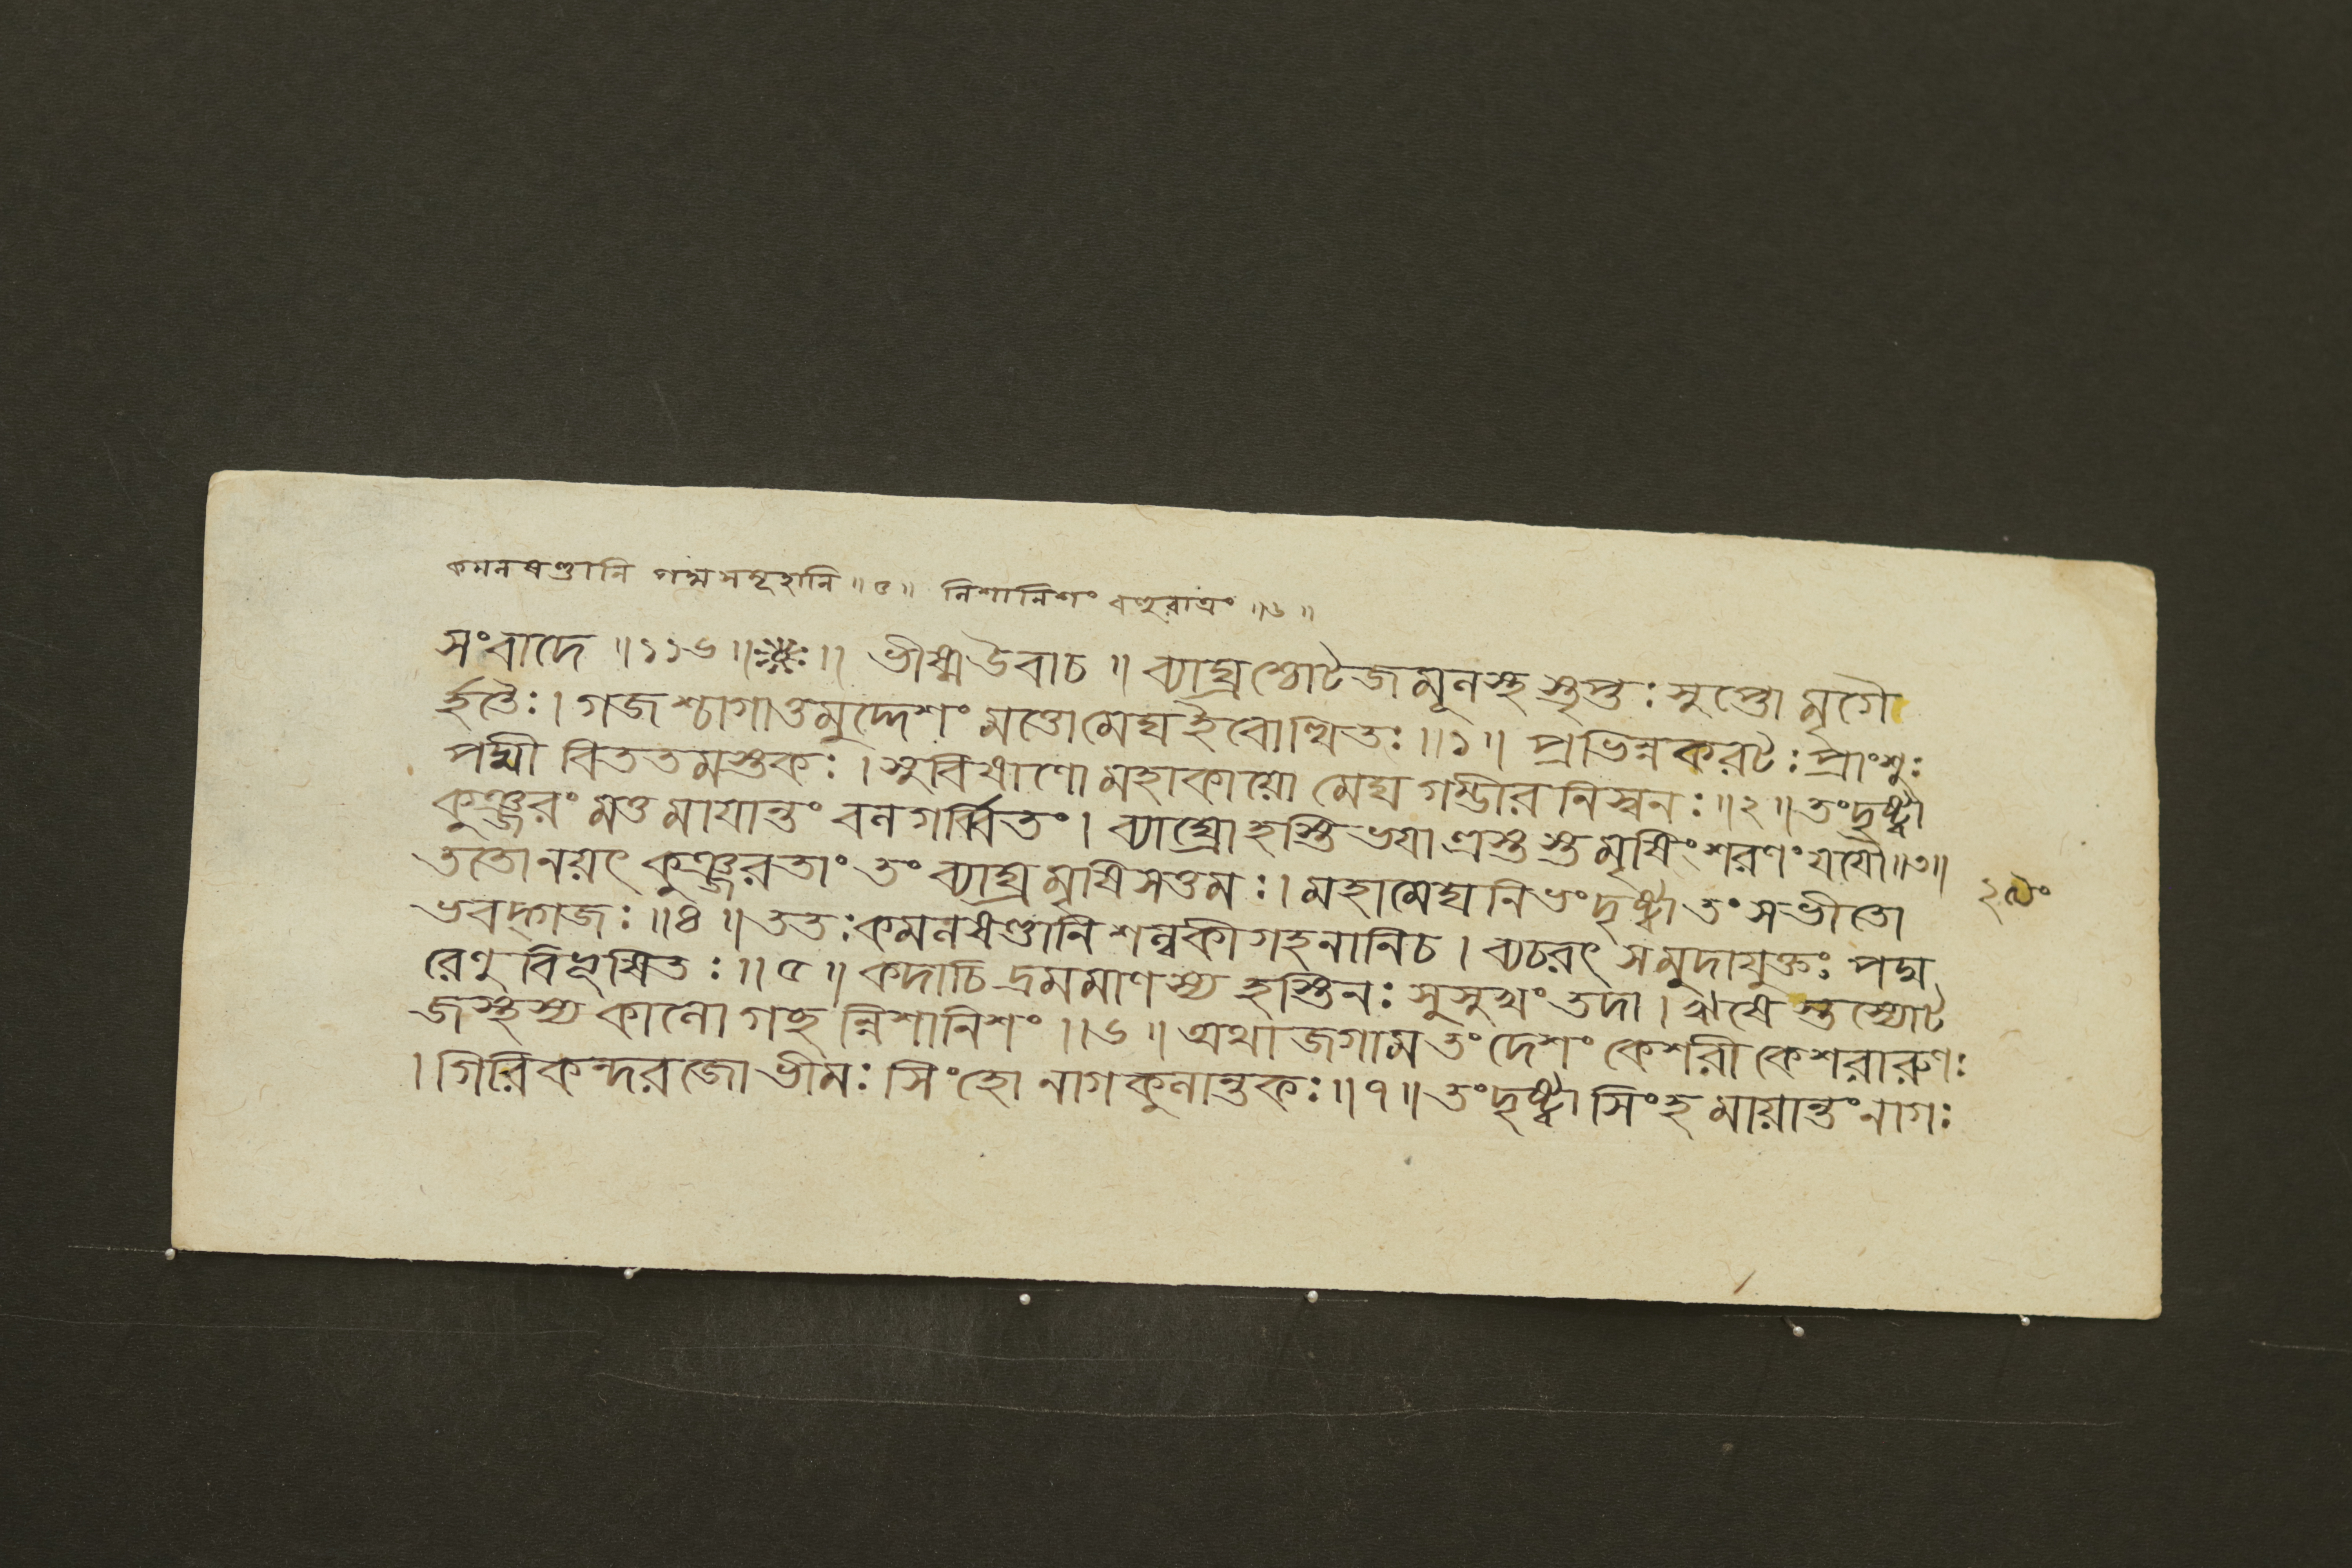 কমলষণ্ডানি পদ্মসমূহানি ॥ ৫ ॥ নিশানিশং বহুরাত্রং ॥ ৬ ॥
সংবাদে ॥ ১১৬ ॥ ॥ ভীষ্মউবাচ ॥ ব্যাঘ্রশ্চোটজমূলস্থস্তৃপ্তঃ সুপ্তো মৃগৈ
র্হতৈঃ । গজশ্চাগাত্তমুদ্দেশং মত্তোমেঘইবোত্থিতঃ ॥ ১ ॥ প্রভিন্নকরটঃ প্রাংশুঃ
পদ্মী বিততমস্তকঃ । সুবিষাণো মহাকায়ো মেঘগম্ভীরনিস্বনঃ ॥ ২ ॥ তংদৃষ্ট্বা
কুঞ্জরং মত্তমাযান্তং বলগর্ব্বিতং । ব্যাঘ্রোহস্তিভযাত্রস্তস্তমৃষিং শরণং যযৌ ॥ ৩ ॥
ততোনয়ৎ কুঞ্জরতাং তং ব্যাঘ্রমৃষিসত্তমঃ । মহামেঘনিভং দৃষ্ট্বা তং সভীতো
ভবদ্গজঃ ॥ ৪ ॥ ততঃকমলষণ্ডানি শল্লকীগহনানিচ । ব্যচরৎ সমুদাযুক্তঃ পদ্ম
রেণুবিভূষিতঃ ॥ ৫ ॥ কদাচিদ্রমমাণস্য হস্তিনঃ সুসুখং তদা । ঋষেস্তস্যোট
জস্থস্য কালোগচ্ছন্নিশানিশং ॥ ৬ ॥ অথাজগাম তং দেশং কেশরী কেশরারুণঃ
। গিরিকন্দরজো ভীমঃ সিংহো নাগকুলান্তকঃ ॥ ৭ ॥ তংদৃষ্ট্বা সিংহমায়ান্তং নাগঃ